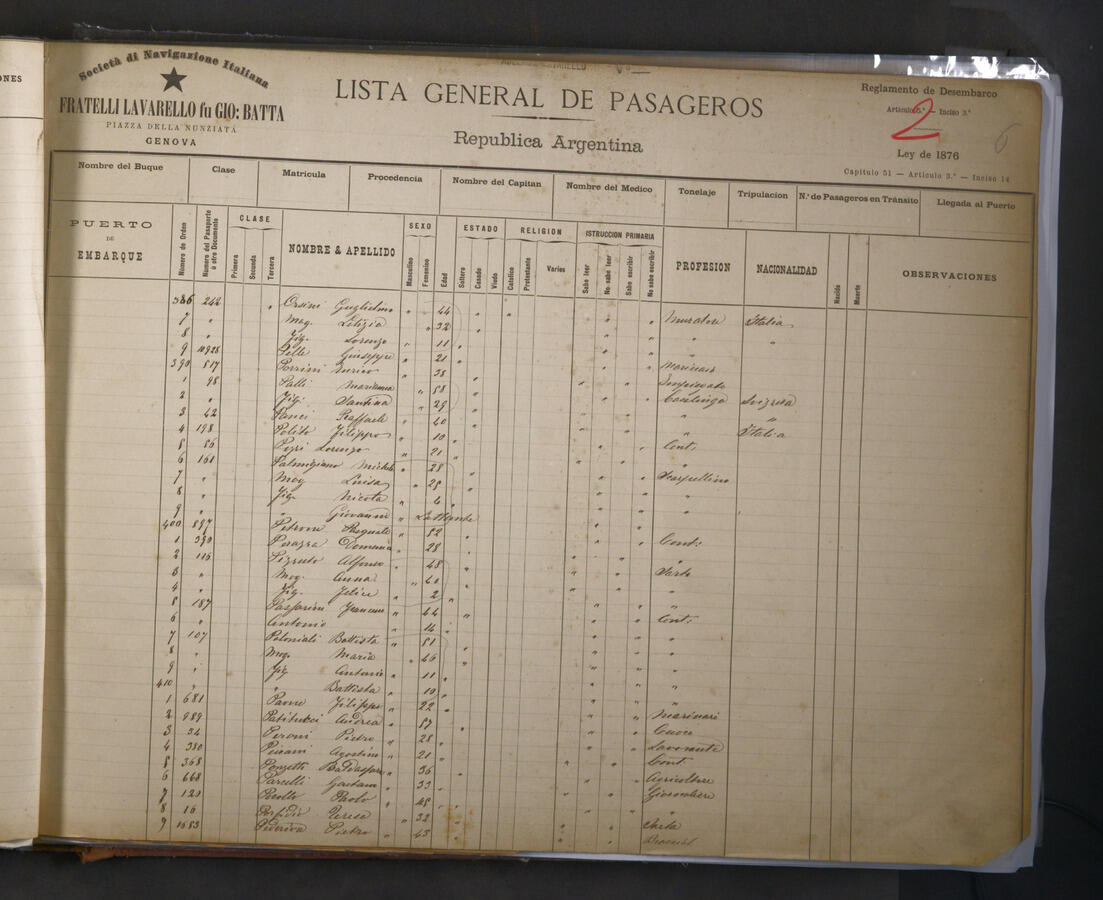 ONES
Società di Navigazione Italiana
FRATELLI LAVARELLO fu GIO: BATTA
PIAZZA DELLA NUNZIATA
GENOVA
LISTA GENERAL DE PASAGEROS
Republica Argentina
Reglamento de Desembarco
Articulo 5.º — Inciso 3.º
2
6
Ley de 1876
Capitulo 51 — Articulo 3.º — Inciso 14
Nombre del Buque Clase Matricula Procedencia Nombre del Capitan Nombre del Medico Tonelaje Tripulacion N.º de Pasageros en Tránsito Llegada al Puerto
PUERTO DE EMBARQUE Número de Orden Número del Pasaporte ó otro Documento CLASE Primera Secunda Tercera NOMBRE & APELLIDO SEXO Masculino Femenino Edad ESTADO Soltero Casado Viudo RELIGION Catolica Protestante Varios ISTRUCCION PRIMARIA Sabe leer No sabe leer Sabe escribir No sabe escribir PROFESION NACIONALIDAD Nacido Muerto OBSERVACIONES
386 242 " Orsini Guglielmo " 44 " " " " Muratore Italia
7 " Mog. Letizia " 32 " " " " "
8 " Fig. Lorenzo " 11 " " " "
9 10928 Pelle Giuseppe " 21 " " " Marinaio
390 517 Porrini Enrico " 38 " " " Impiegato
1 98 Palli Marianna " 58 " " " Casalinga Svizzera
2 " Fig. Santina " 29 " " " " "
3 42 Ponci Raffaele " 40 " " " " Italia
4 198 Polito Filippo " 10 " " " Cont.
5 86 Pezzi Lorenzo " 21 " " " "
6 161 Palmigiano Michele " 28 " " " Scarpellino
7 " Mog. Luisa " 28 " " " "
8 " Fig. Nicola " 6 " " " "
9 " " Giovanni " Lattante
400 897 Petrone Pasquale " 52 " " " Cont.
1 390 Perazza " 28 " " " "
2 116 Alfonso " 48 " " " Sarto
3 " Mog. Anna " 40 " " " "
4 " Fig. Felice " 2 " " " "
5 187 Passarini " 44 " " " Cont.
6 " Antonio " 14 " " " "
7 107 Battista " 51 " " " "
8 " Mog. Maria " 46 " " " "
9 " Fig. Antonio " 11 " " " "
410 " " Battista " 10 " " " "
1 681 Filippo " 22 " " " Marinari
2 989 Patitucci Andrea " 57 " " " Cuoco
3 34 Peroni Pietro " 28 " " " Lavorante
4 380 Agostino " 21 " " " Cont.
5 368 Ponzetti Baldassare " 36 " " " Agricoltore
6 668 Porcelli Gaetano " 33 " " " Giocoliere
7 120 Paolo " 48 " " " "
8 16 Porfidio Teresa " 32 " " " Sarta
9 1683 Pederiva Pietro " 43 " "